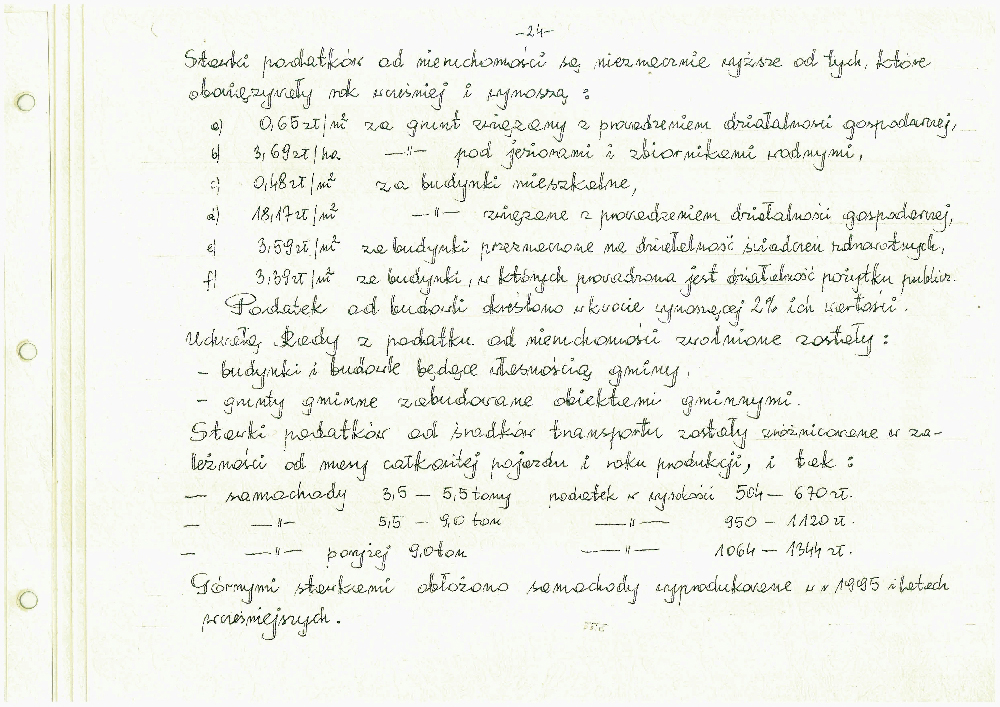 -24-
Stawki podatków od nieruchomości są nieznacznie wyższe od tych, które
obowiązywały rok wcześniej i wynoszą :
a) 0,65 zł/m² za grunt związany z prowadzeniem działalności gospodarczej,
b) 3,69 zł/ha —〃— pod jeziorami i zbiornikami wodnymi,
c) 0,48 zł/m² za budynki mieszkalne,
d) 18,17 zł/m² —〃— związane z prowadzeniem działalności gospodarczej,
e) 3,59 zł/m² za budynki przeznaczone na działalność świadczeń zdrowotnych,
f) 3,39 zł/m² za budynki, w których prowadzona jest działalność pożytku publicz.
Podatek od budowli określono w kwocie wynoszącej 2% ich wartości.
Uchwałą Rady z podatku od nieruchomości zwolnione zostały :
- budynki i budowle będące własnością gminy,
- grunty gminne zabudowane obiektami gminnymi.
Stawki podatków od środków transportu zostały zróżnicowane w za-
leżności od masy całkowitej pojazdu i roku produkcji, i tak :
— samochody 3,5 — 5,5 tony podatek w wysokości 504 — 670 zł.
— —〃— 5,5 — 9,0 ton —〃— 950 — 1120 zł.
— —〃— powyżej 9,0 ton —〃— 1064 — 1344 zł.
Górnymi stawkami obłożono samochody wyprodukowane w r 1995 i latach
wcześniejszych.